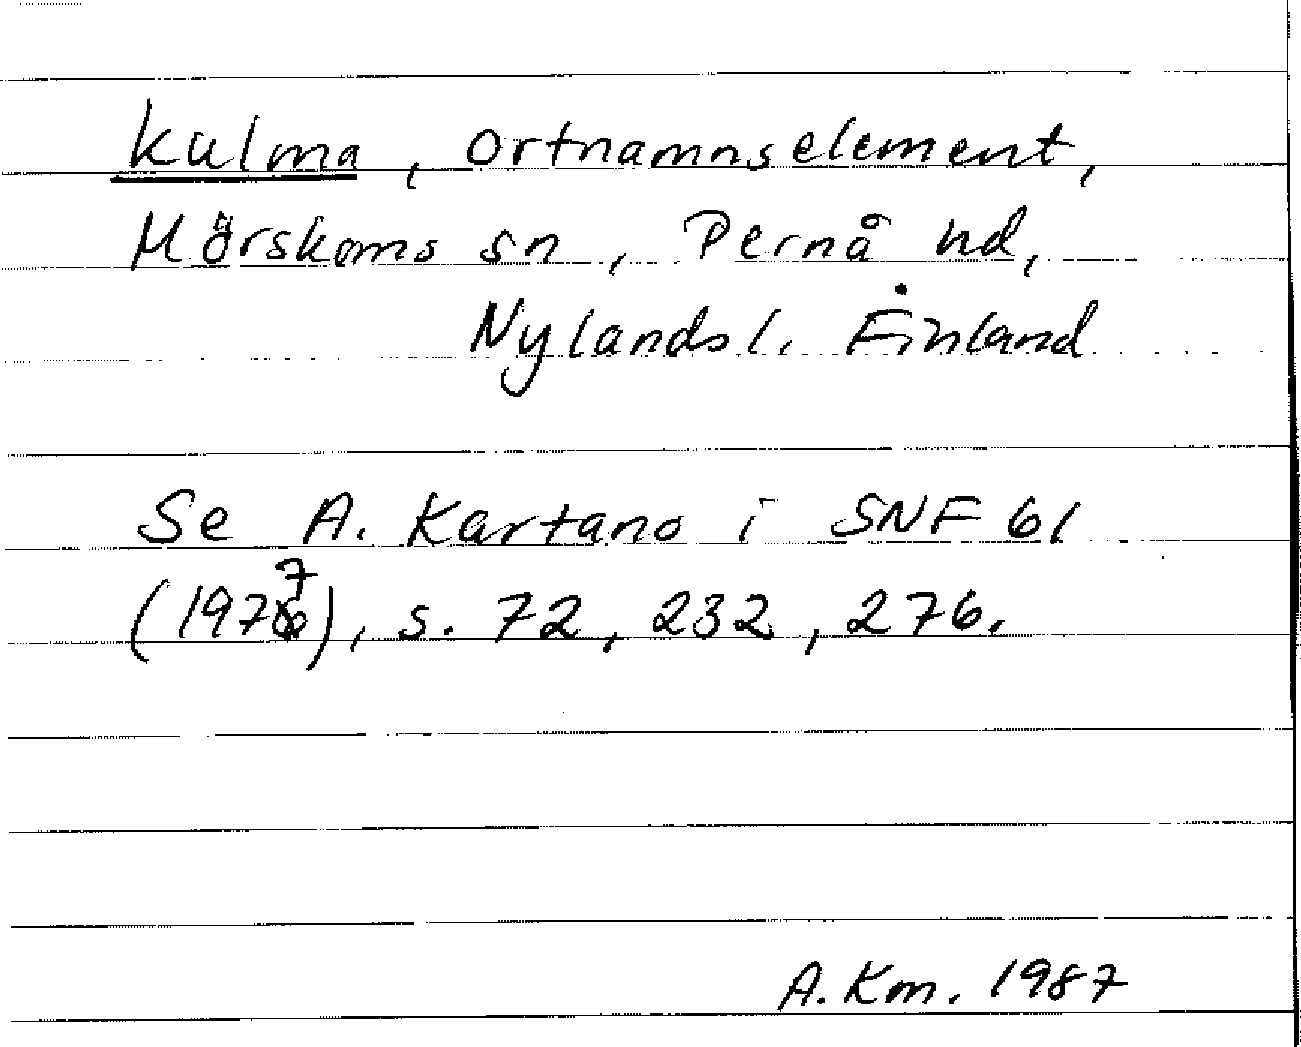 kulma, ortnamnselement,
Mörskoms sn, Pernå hd,
Nylandsl. Finland
Se A. Kartano i SNF 61
(1977), s. 72, 232, 276.
A. Km. 1987